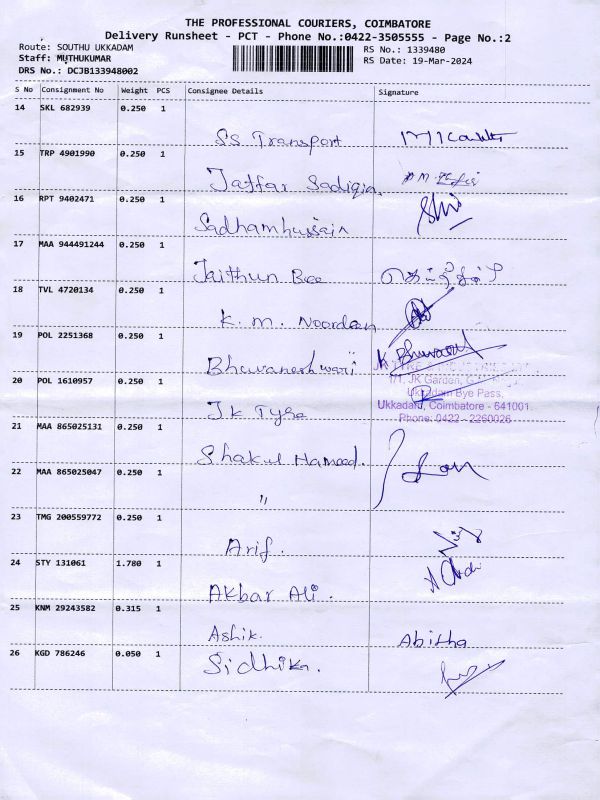 THE PROFESSIONAL COURIERS, COIMBATORE
Delivery Runsheet - PCT - Phone No.:0422-3505555 - Page No.:2
Route: SOUTHU UKKADAM
RS No.: 1339480
Staff: MUTHUKUMAR
RS Date: 19-Mar-2024
DRS No.: DCJB133948002
S No Consignment No Weight PCS Consignee Details Signature
14 SKL 682939 0.250 1
SS Transport
15 TRP 4901990 0.250 1
Jaffar Sadiqia
16 RPT 9402471 0.250 1
Sadhamhussain
17 MAA 944491244 0.250 1
Jaithun Bee
18 TVL 4720134 0.250 1
K. M. Noordeen
19 POL 2251368 0.250 1
Bhuvaneshwari K Bhuvana
20 POL 1610957 0.250 1
JK Tyre
JK Garden,
Ukkadam Bye Pass,
Ukkadam, Coimbatore - 641001.
Phone: 0422 - 2260026
21 MAA 865025131 0.250 1
Shakul Hameed.
22 MAA 865025047 0.250 1
"
23 TMG 200559772 0.250 1
Arif.
24 STY 131061 1.780 1
Akbar Ali.
25 KNM 29243582 0.315 1
Ashik. Abitha
26 KGD 786246 0.050 1
Sidhika.